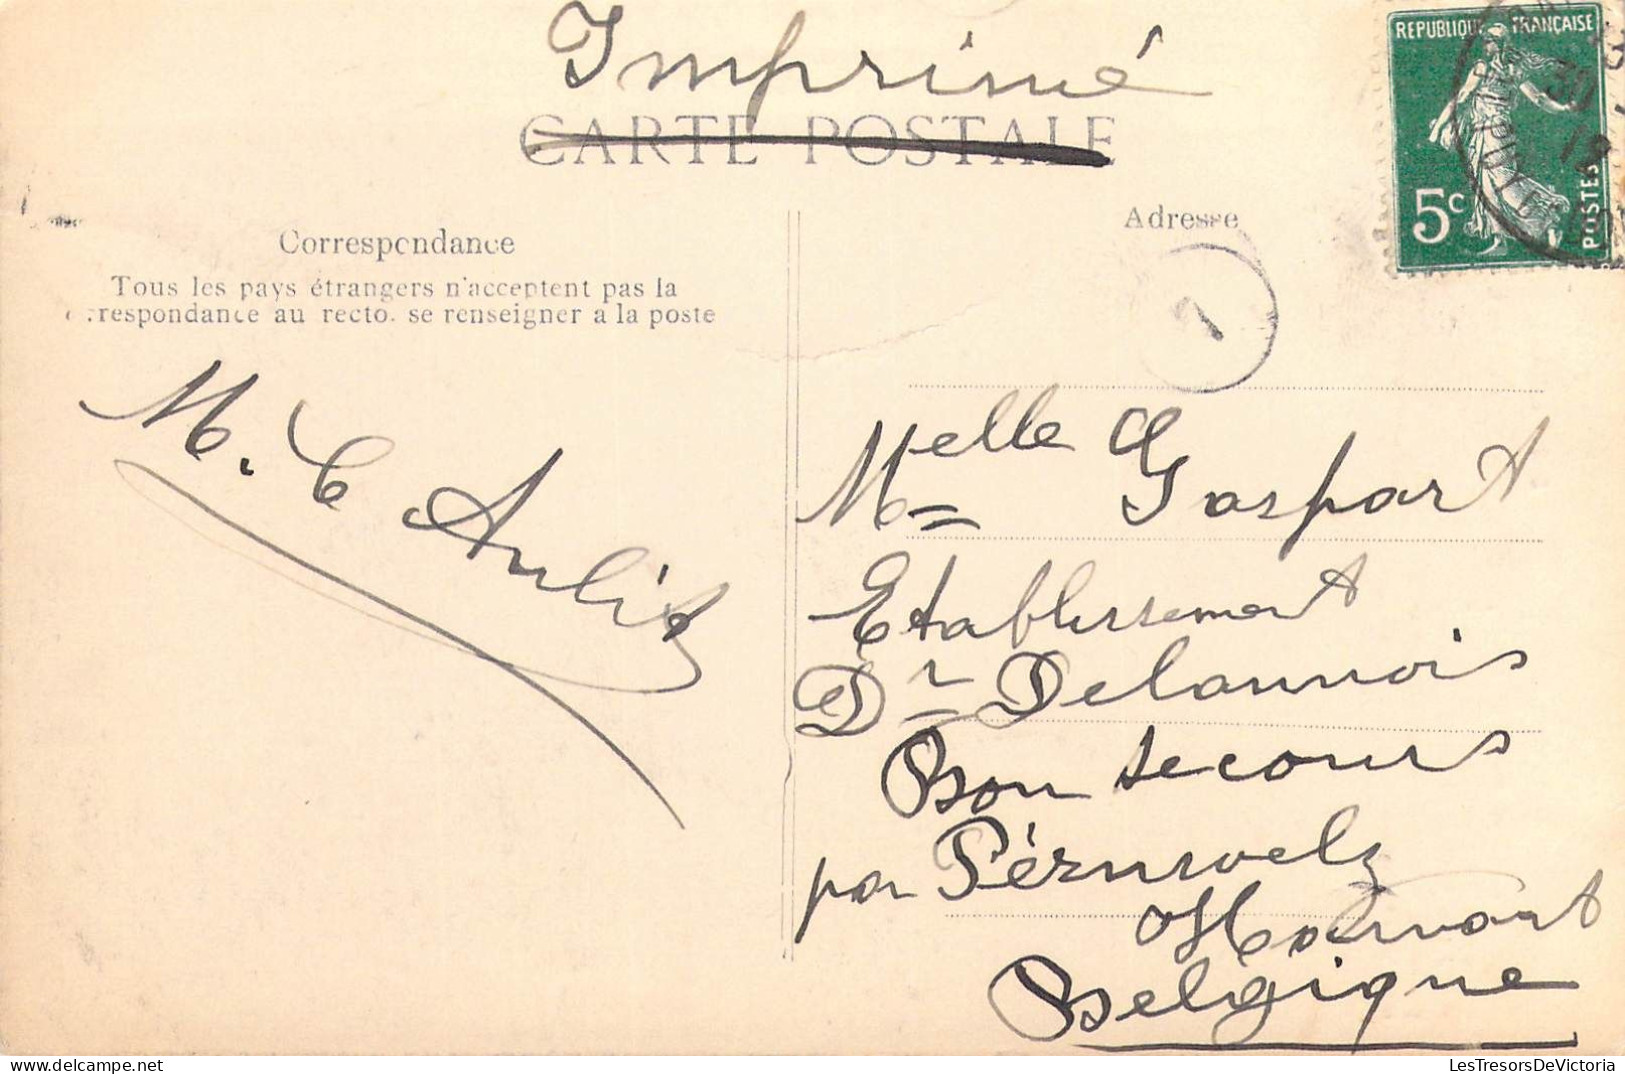 Imprimé
CARTE POSTALE
REPUBLIQUE FRANÇAISE
5c
POSTES
Correspondance
Tous les pays étrangers n'acceptent pas la
respondance au recto. se renseigner a la poste
Adresse
M. C Aulit
Melle Gaspart
Etablissement
Dr Delannois
Bon secours
par Péruwelz
Hainaut
Belgique
LesTresorsDeVictoria